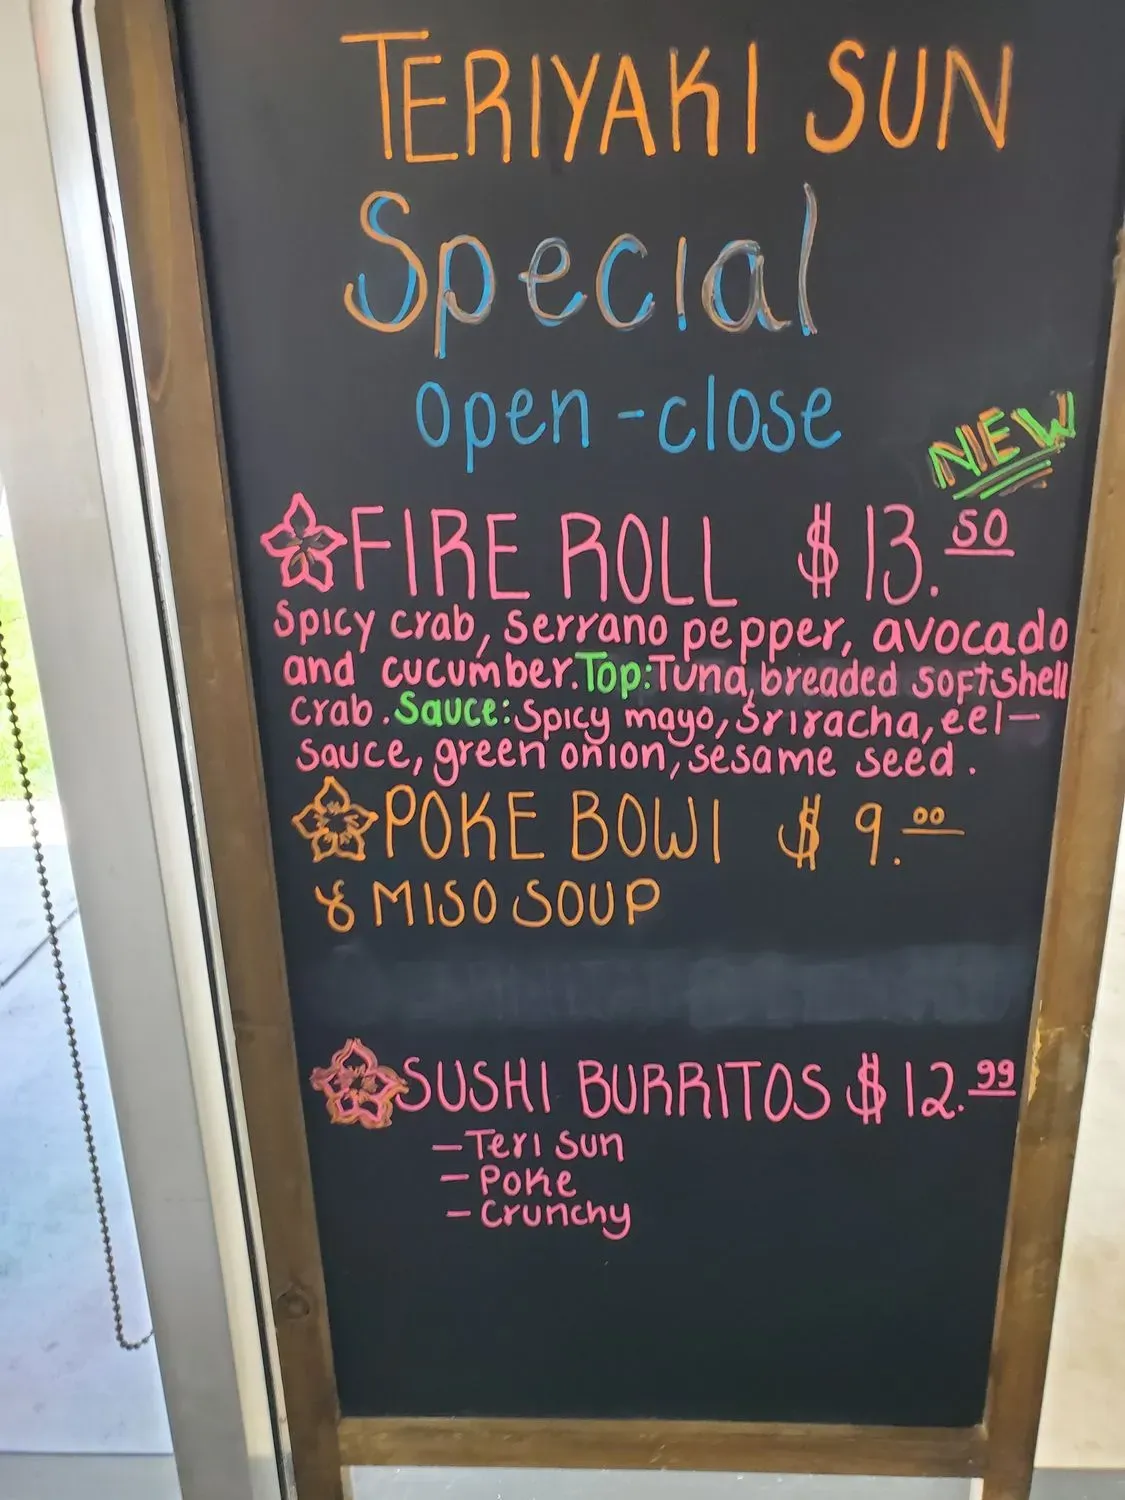 TERIYAKI SUN
Special
open - close
NEW
FIRE ROLL $13.50
Spicy crab, serrano pepper, avocado
and cucumber. Top: Tuna, breaded softshell
crab. Sauce: Spicy mayo, Sriracha, eel—
sauce, green onion, sesame seed.
POKE BOWl $9.00
& MISO SOUP
SUSHI BURRITOS $12.99
— Teri Sun
— Poke
— Crunchy